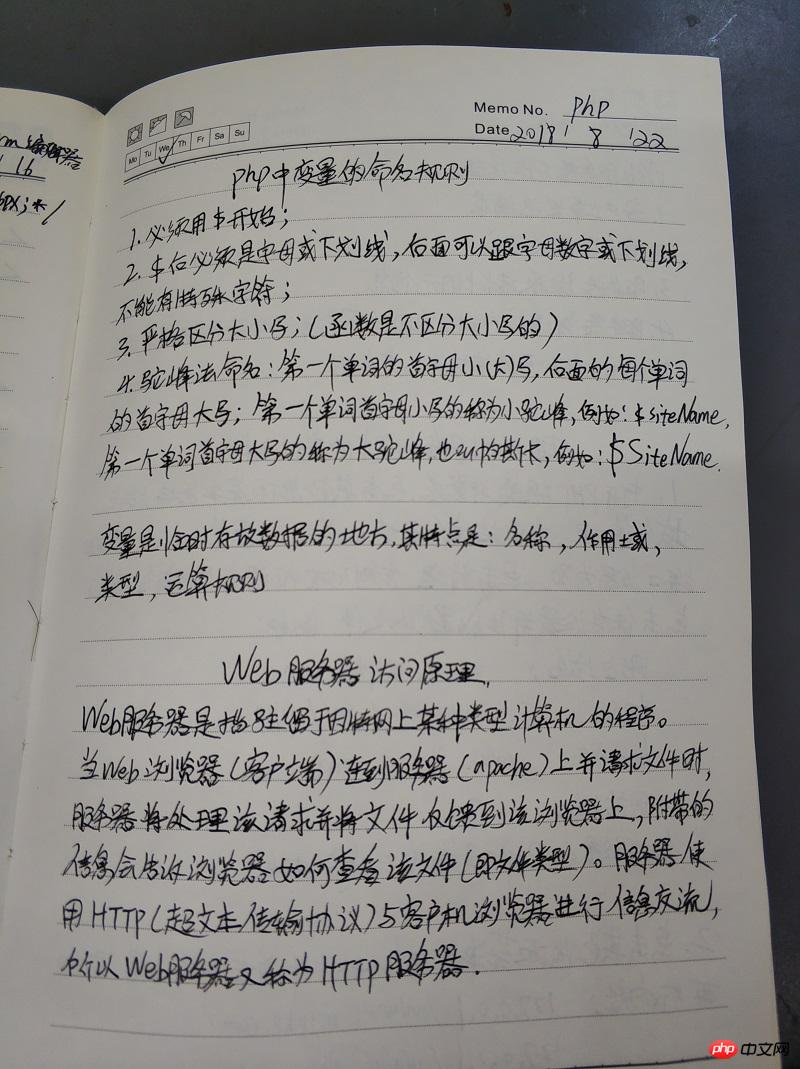 m 编辑器
1 16
Memo No. php
Date 2018 / 8 / 22
Mo Tu We Th Fr Sa Su
php中变量的命名规则
1. 必须用$开始;
2. $后必须是字母或下划线,后面可以跟字母数字或下划线,
不能有特殊字符;
3. 严格区分大小写;(函数是不区分大小写的)
4. 驼峰法命名:第一个单词的首字母小(大)写,后面的每个单词
的首字母大写;第一个单词首字母小写的称为小驼峰,例如:$siteName,
第一个单词首字母大写的称为大驼峰,也叫帕斯卡,例如:$SiteName.
变量是临时存放数据的地方,其特点是:名称,作用域,
类型,运算规则
Web服务器访问原理.
Web服务器是指驻留于因特网上某种类型计算机的程序。
当Web浏览器(客户端)连到服务器(apache)上并请求文件时,
服务器将处理该请求并将文件反馈到该浏览器上,附带的
信息会告诉浏览器如何查看该文件(即文件类型)。服务器使
用HTTP(超文本传输协议)与客户机浏览器进行信息交流,
所以Web服务器又称为HTTP服务器.
php 中文网